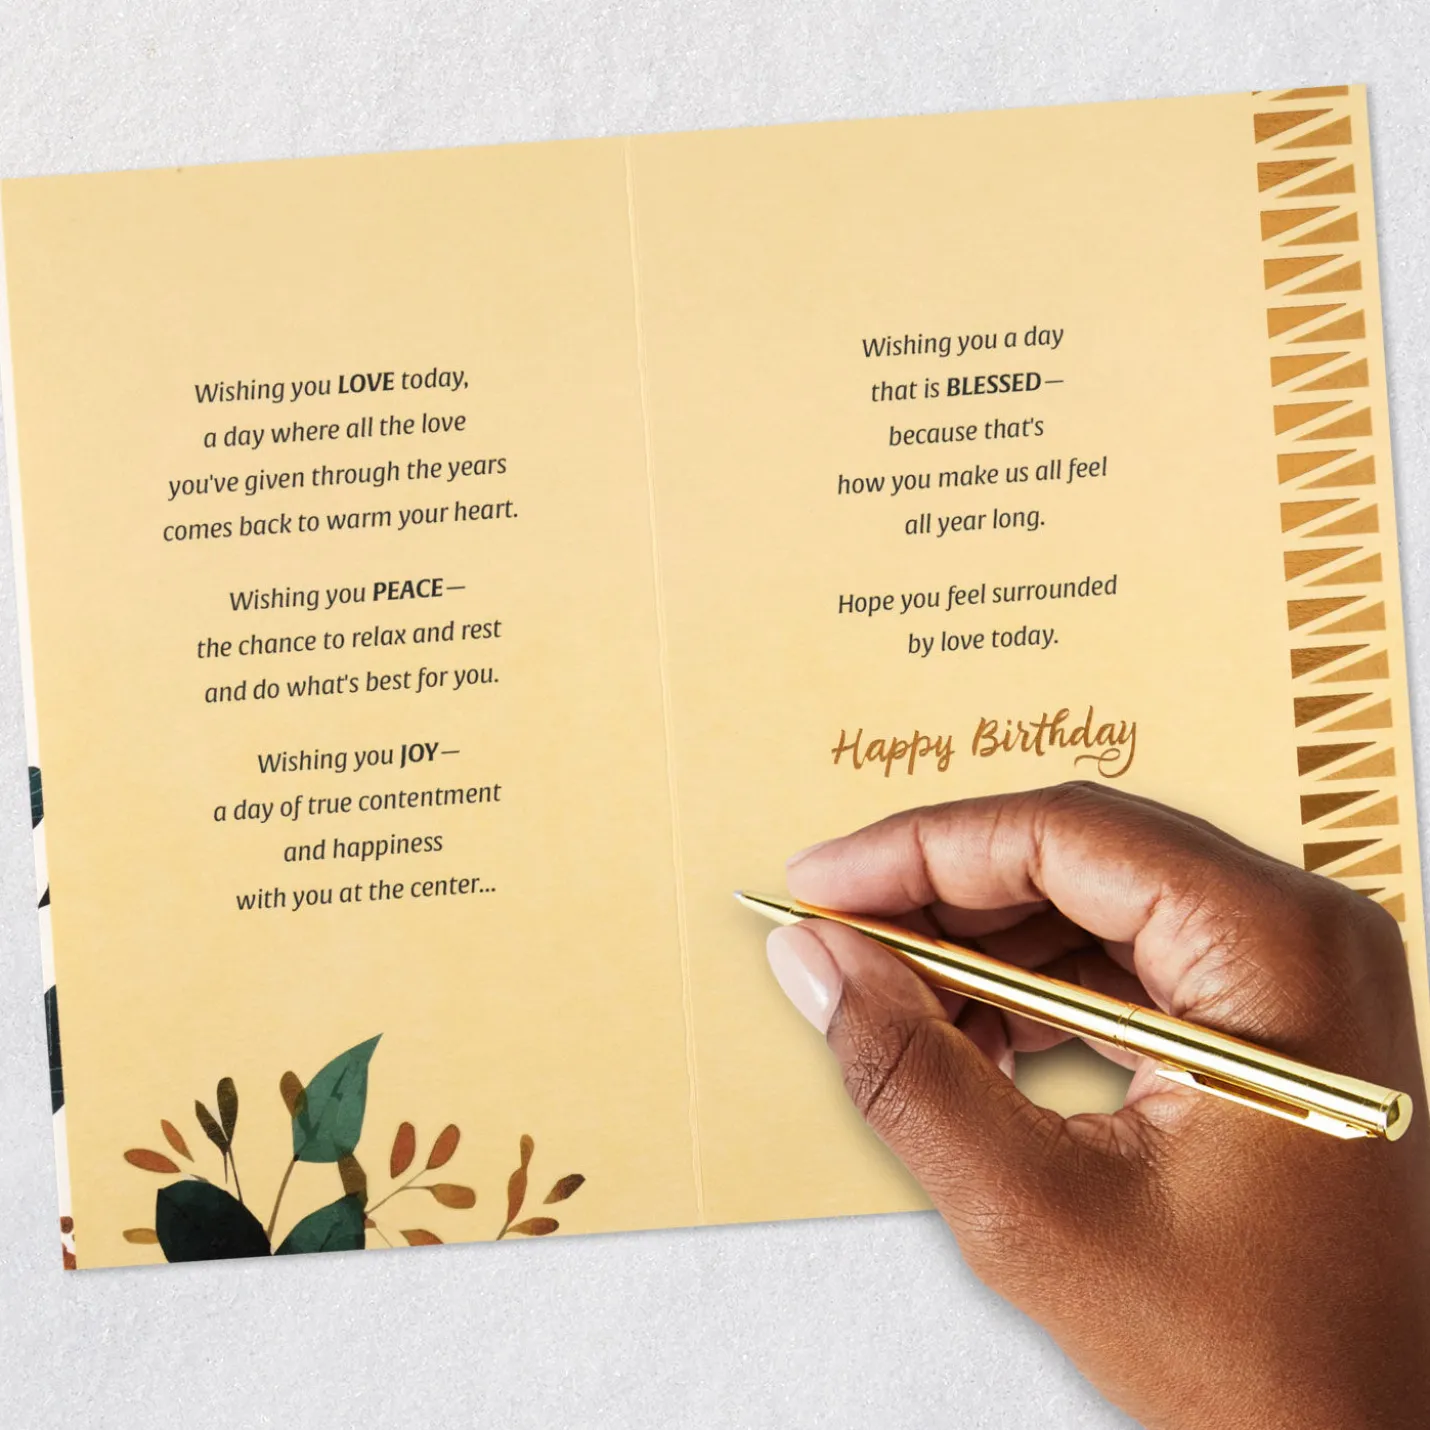 Wishing you LOVE today,
a day where all the love
you've given through the years
comes back to warm your heart.
Wishing you PEACE—
the chance to relax and rest
and do what's best for you.
Wishing you JOY—
a day of true contentment
and happiness
with you at the center...
Wishing you a day
that is BLESSED—
because that's
how you make us all feel
all year long.
Hope you feel surrounded
by love today.
Happy Birthday